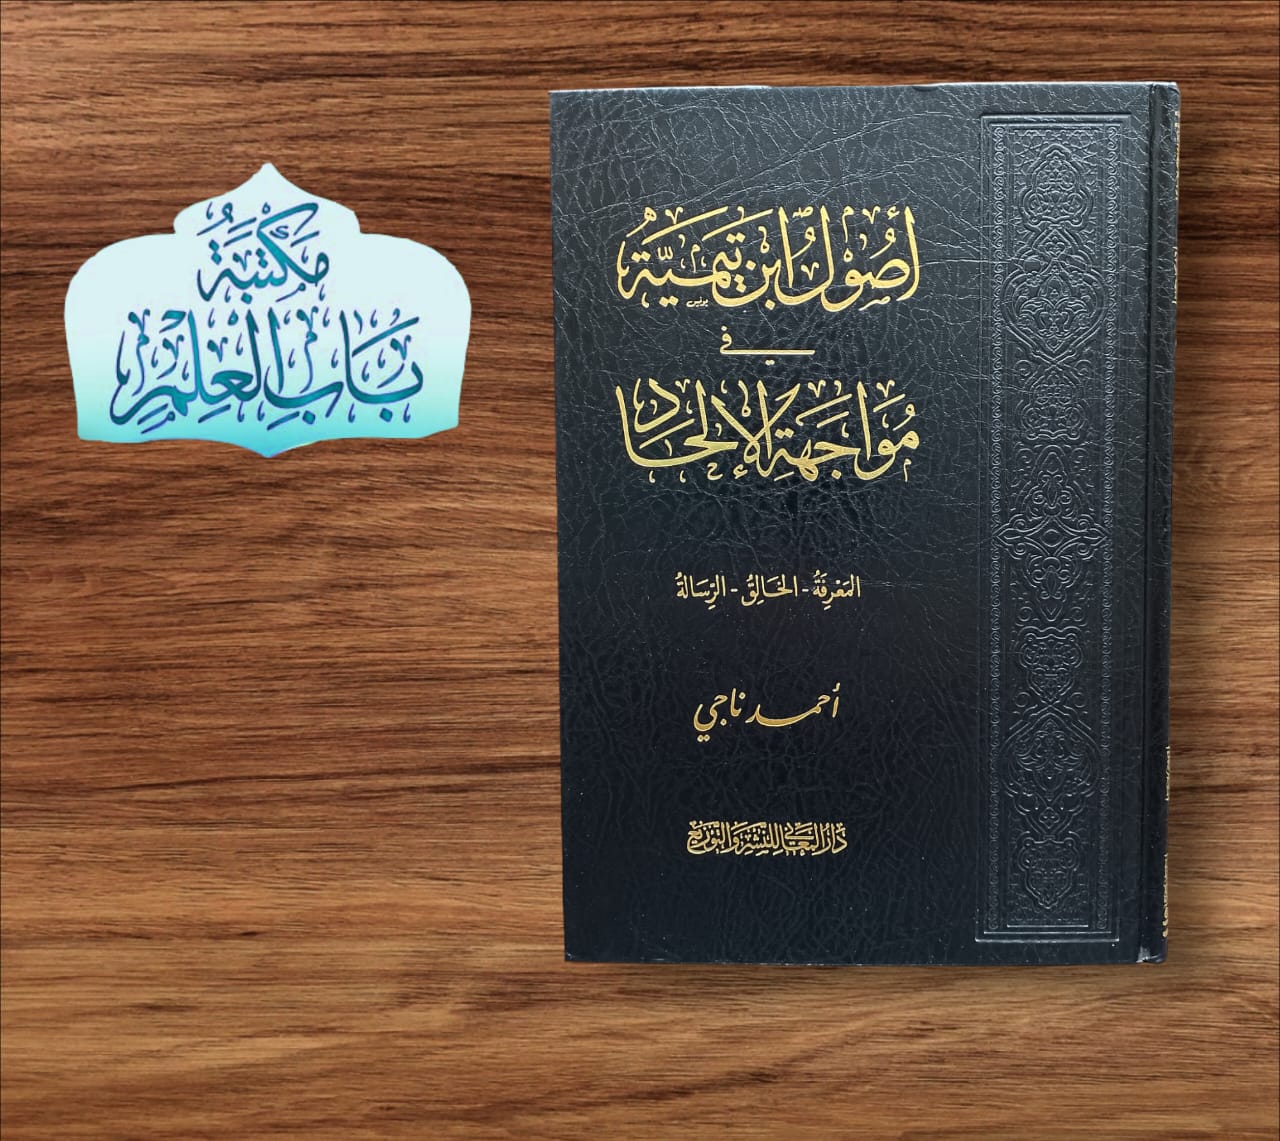 مَكْتَبَةُ
بَابُ الْعِلْمِ
أُصُولُ ابْنِ تَيْمِيَّةَ
فِي
مُوَاجَهَةِ الْإِلْحَادِ
المَعْرِفَةُ - الخَالِقُ - الرِّسَالَةُ
أحمد ناجي
دَارُ المَعَانِي لِلنَّشْرِ وَالتَّوْزِيعِ